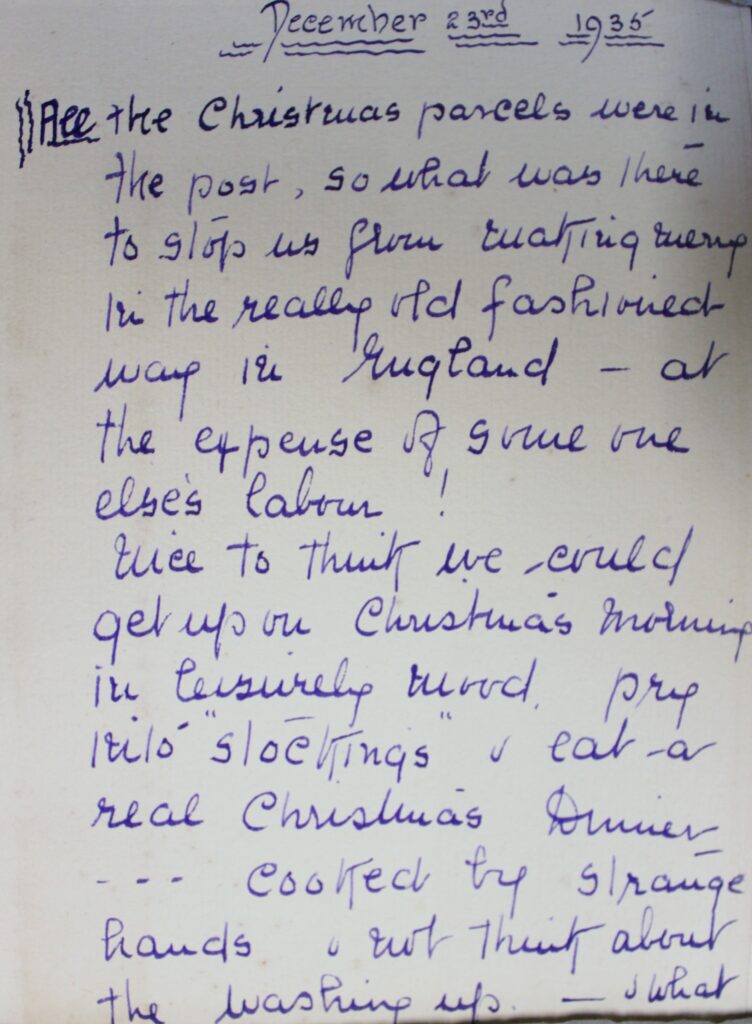 December 23rd 1935
All the Christmas parcels were in
the post, so what was there
to stop us from making merry
in the really old fashioned
way in England – at
the expense of some one
else's labour !
Nice to think we could
get up on Christmas Morning
in leisurely mood, pry
into "stockings" & eat a
real Christmas Dinner
--- cooked by strange
hands & not think about
the washing up. – & what